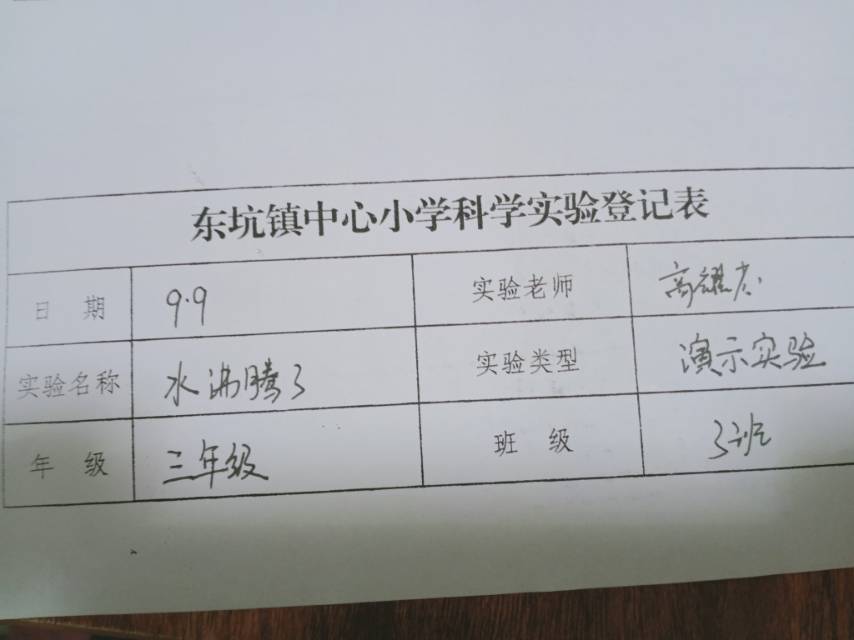 东坑镇中心小学科学实验登记表
日 期 9.9 实验老师 高耀
实验名称 水沸腾了 实验类型 演示实验
年 级 三年级 班 级 3班